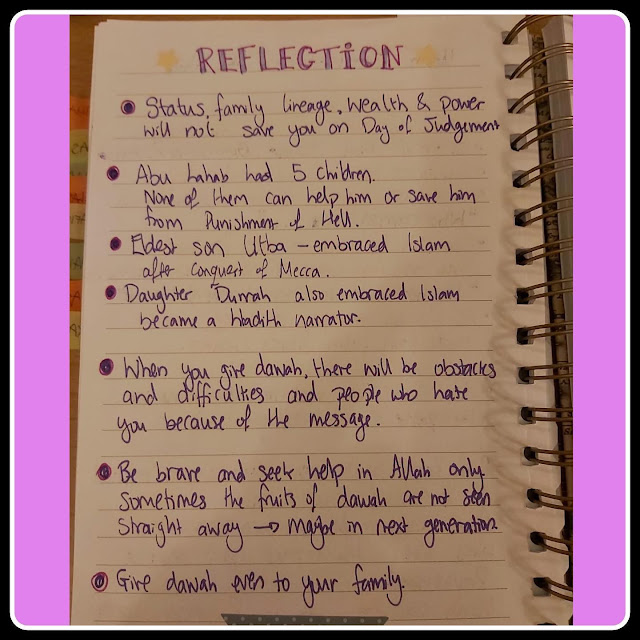 REFLECTION
Status, family lineage, wealth & power
will not save you on Day of Judgement
Abu Lahab had 5 children.
None of them can help him or save him
from Punishment of Hell.
Eldest son Utba - embraced Islam
after conquest of Mecca.
Daughter Durrah also embraced Islam
became a Hadith narrator.
When you give dawah, there will be obstacles
and difficulties and people who hate
you because of the message.
Be brave and seek help in Allah only
Sometimes the fruits of dawah are not seen
Straight away → Maybe in next generation.
Give dawah even to your family.